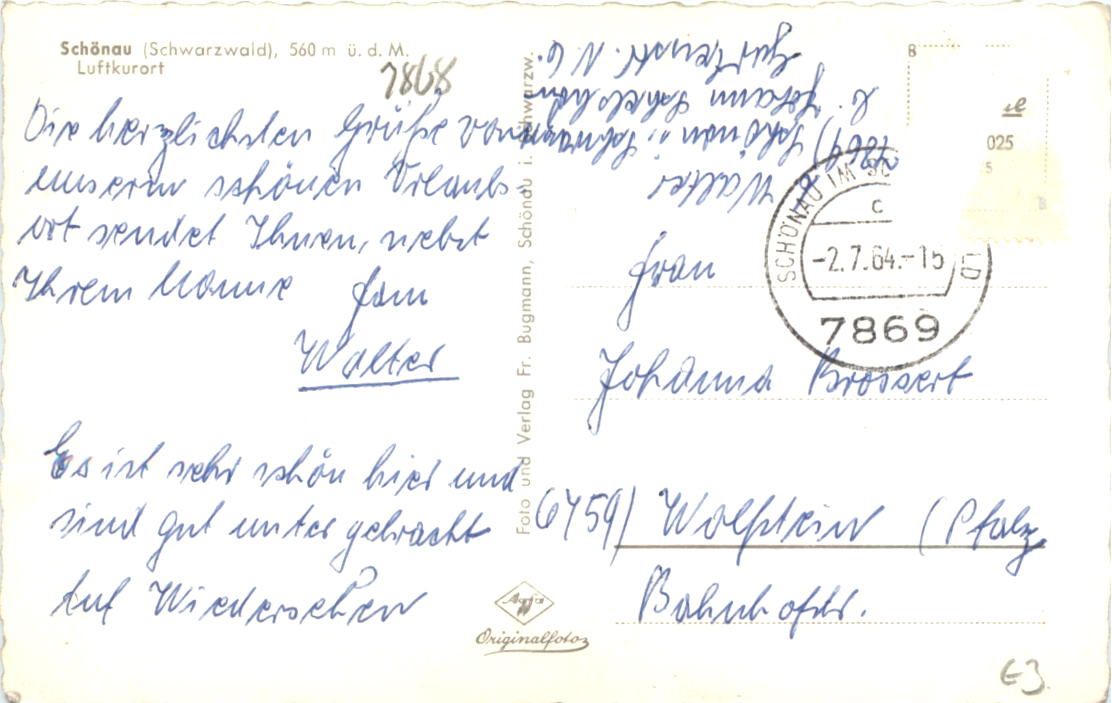 Schönau (Schwarzwald), 560 m ü. d. M.
Luftkurort
7868
Die herzlichsten Grüße von
unserm schönen Urlaubs-
ort sendet Ihnen, nebst
Ihrem Manne Fam
Walter
Es ist sehr schön hier und
sind gut unter gebracht
Auf Wiedersehen
Foto und Verlag Fr. Bugmann, Schönau i. Schwarzw.
Agfa
Originalfoto
Walter
7869) Schönau i. Schwarzw.
b. Johann
Gartenstr. N. 6.
8
025
5
8
SCHÖNAU IM SC LD
c
-2.7.64.-15
7869
Frau
Johanna Brossert
6759) Wolfstein (Pfalz
Bahnhofstr.
E3